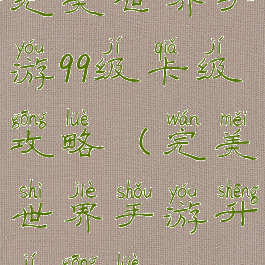 完美世界手
yóu jí qiǎ jí
游99级卡级
gōng lüè wán měi
攻略(完美
shì jiè shǒu yóu shēng
世界手游升
jí gōng lüè